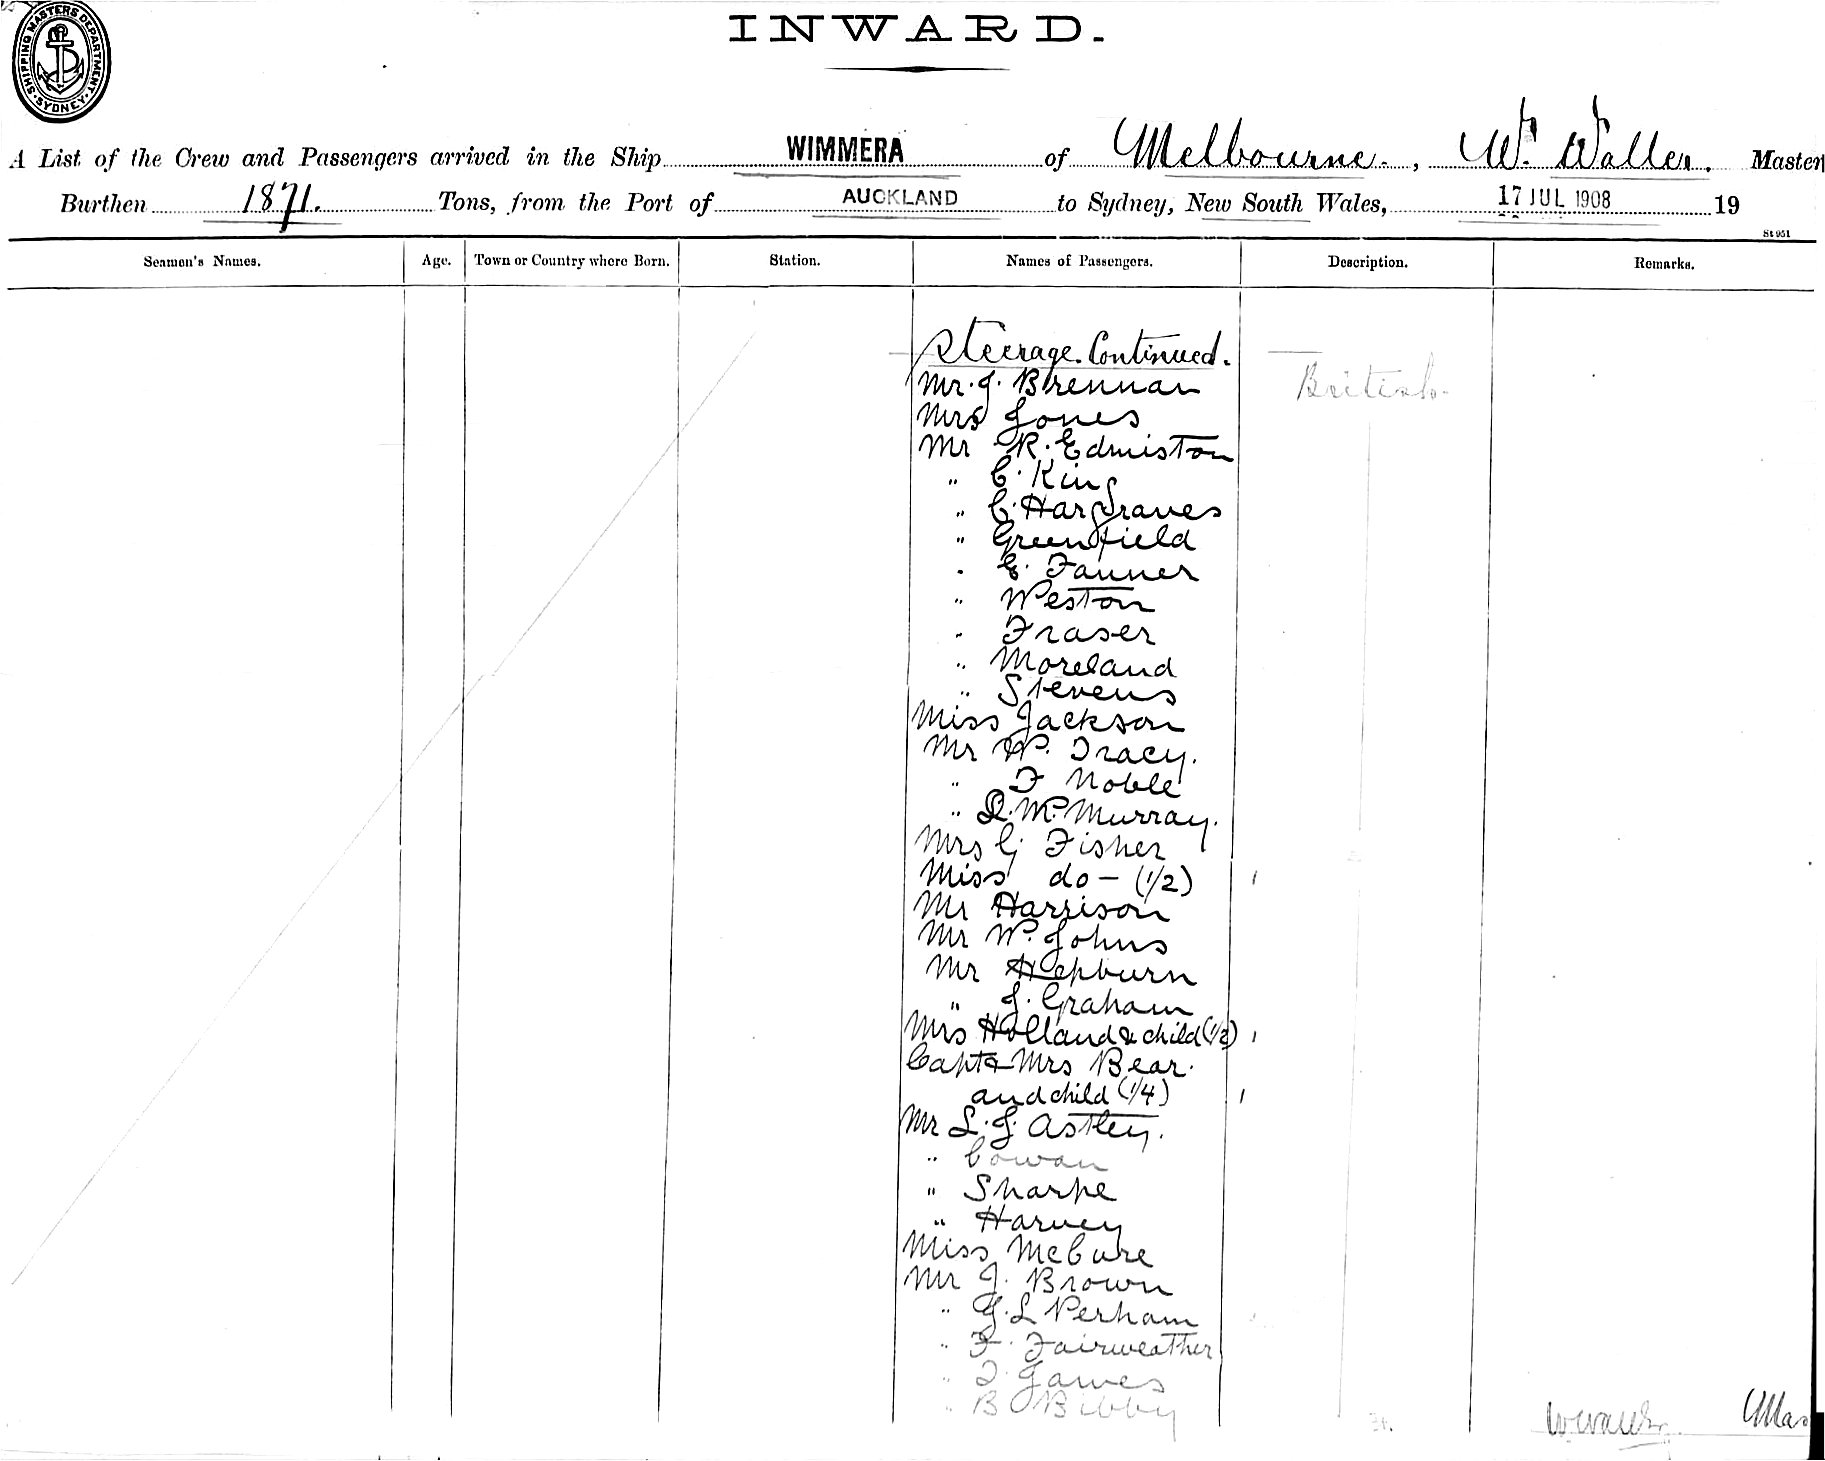 SHIPPING MASTERS DEPARTMENT. SYDNEY.
INWARD.
A List of the Crew and Passengers arrived in the Ship WIMMERA of Melbourne., W. Waller. Master
Burthen 1871. Tons, from the Port of AUCKLAND to Sydney, New South Wales, 17 JUL 1908 19
St 951
Seamen's Names. Age. Town or Country where Born. Station. Names of Passengers. Description. Remarks.
Steerage. Continued.
Mr. J. Brennan British.
Mrs Jones
Mr R. Edmiston
" C. King
" C. Hargraves
" Greenfield
" E. Fanner
" Weston
" Fraser
" Moreland
" Stevens
Miss Jackson
Mr W. Tracy.
" F Noble
" D. Mc Murray.
Mrs G Fisher
Miss do - (1/2)
Mr Harrison
Mr W. Johns
Mr Hepburn
" J. Graham
Mrs Holland & child (1/2)
Capt & Mrs Bear.
and child (1/4)
Mr L. J. Astley.
" Cowan
" Sharpe
" Harvey
Miss McCure
Mr J. Brown
" G. L Perham
" F. Fairweather
" T. James
" B Bibby
Mas